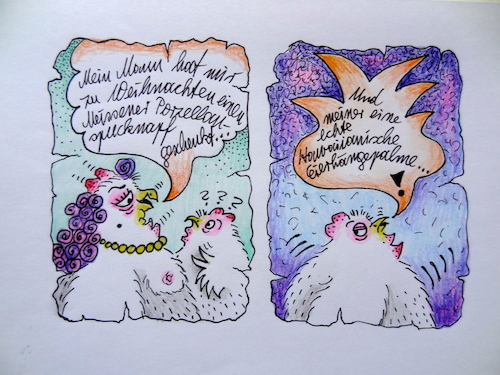 Mein Mann hat mir
zu Weihnachten einen
Meissener Porzellan-
spucknapf
geschenkt...
???
Und
meiner eine
echte
Hawaiianische
Eierhängepalme...
!